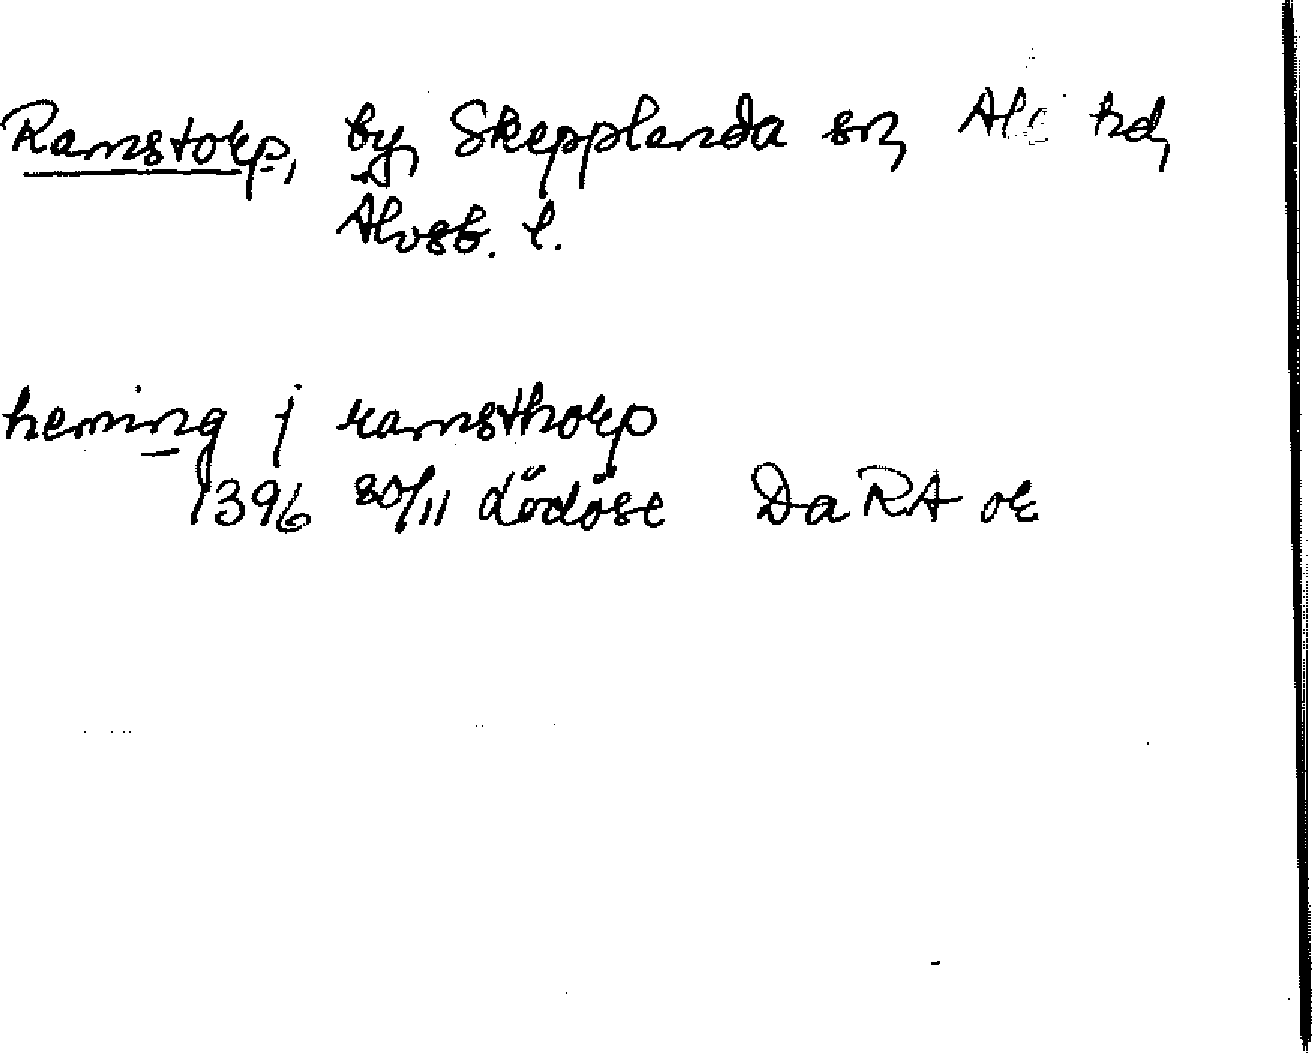 Ramstorp, by, Skepplanda sn, Ale hd,
Älvsb. l.
heming j ramsthorp
1396 30/11 Lödöse DaRA or